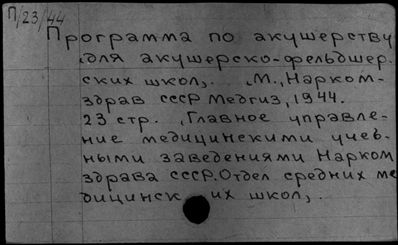 П/23/44
Программа по акушерству
для акушерско-фельдшер-
ских школ,. М., Нарком-
здрав СССР Медгиз, 1944.
23 стр. , Главное управле-
ние медицинскими учеб-
ными заведениями Нарком
здрава СССР. Отдел средних ме
дицинск их школ,.